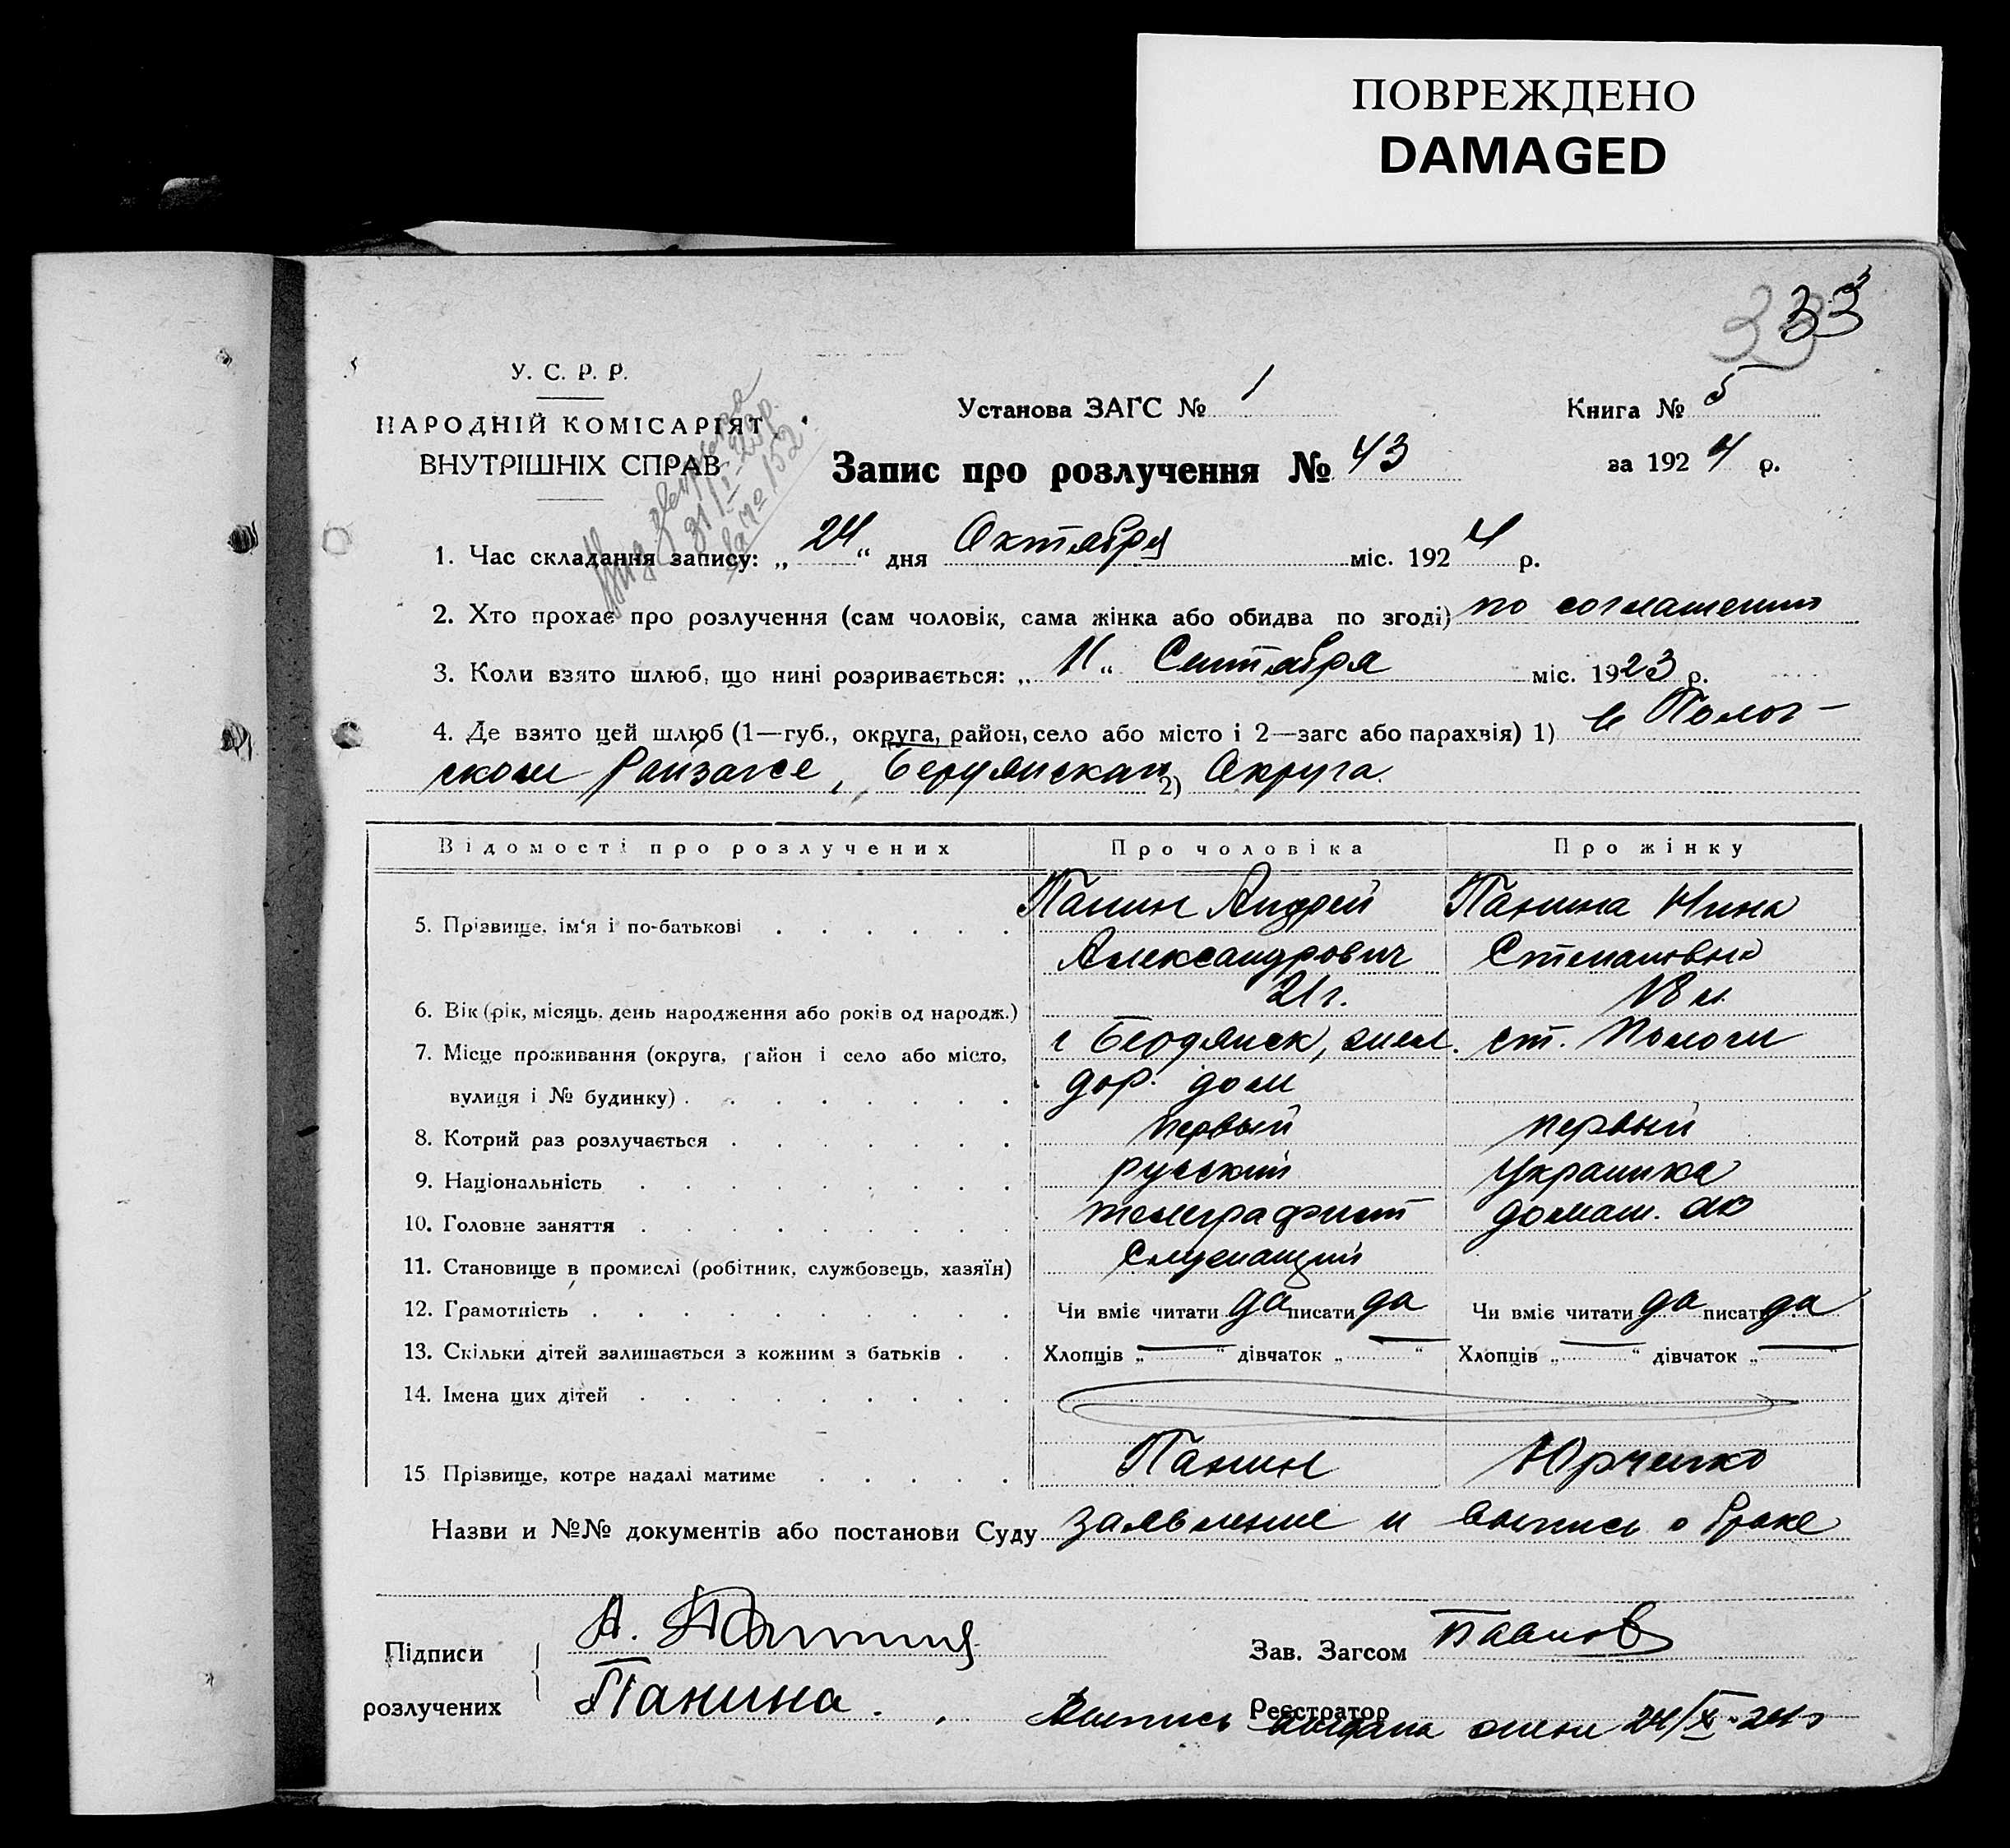 ПОВРЕЖДЕНО
DAMAGED
33
У. С. Р. Р.
НАРОДНІЙ КОМІСАРІЯТ
ВНУТРІШНІХ СПРАВ
Установа ЗАГС № 1
Книга № 5
Запис про розлучення № 43
за 1924 р.
1. Час складання запису: „24“ дня Октября міс. 1924 р.
2. Хто прохає про розлучення (сам чоловік, сама жінка або обидва по згоді) по соглашению
3. Коли взято шлюб, що нині розривається: „11“ Сентября міс. 1923 р.
4. Де взято цей шлюб (1—губ., округа, район, село або місто і 2—загс або парахвія) 1) в Полог-
ском Райзагсе, Бердянская 2) Округа.
Відомості про розлучених Про чоловіка Про жінку
5. Прізвище, ім'я і по-батькові Панин Андрей Панина Нина
Александрович Степановна
6. Вік (рік, місяць, день народження або років од народж.) 21 г. 18 л.
7. Місце проживання (округа, район і село або місто, г Бердянск, жел. ст. Пологи
вулиця і № будинку) дор. дом
8. Котрий раз розлучається первый первый
9. Національність русский Украинка
10. Головне заняття телеграфист домаш. хоз
11. Становище в промислі (робітник, службовець, хазяїн) Служащий
12. Грамотність Чи вміє читати да писати да Чи вміє читати да писати да
13. Скільки дітей залишається з кожним з батьків Хлопців „—“ дівчаток „—“ Хлопців „—“ дівчаток „—“
14. Імена цих дітей
15 Прізвище, котре надалі матиме Панин Юрченко
Назви и №№ документів або постанови Суду заявление и выпись о браке
Підписи А. Панин Зав. Загсом Павлов
розлучених Панина. Реєстратор
Выпись выдана жене 24/X-24 г